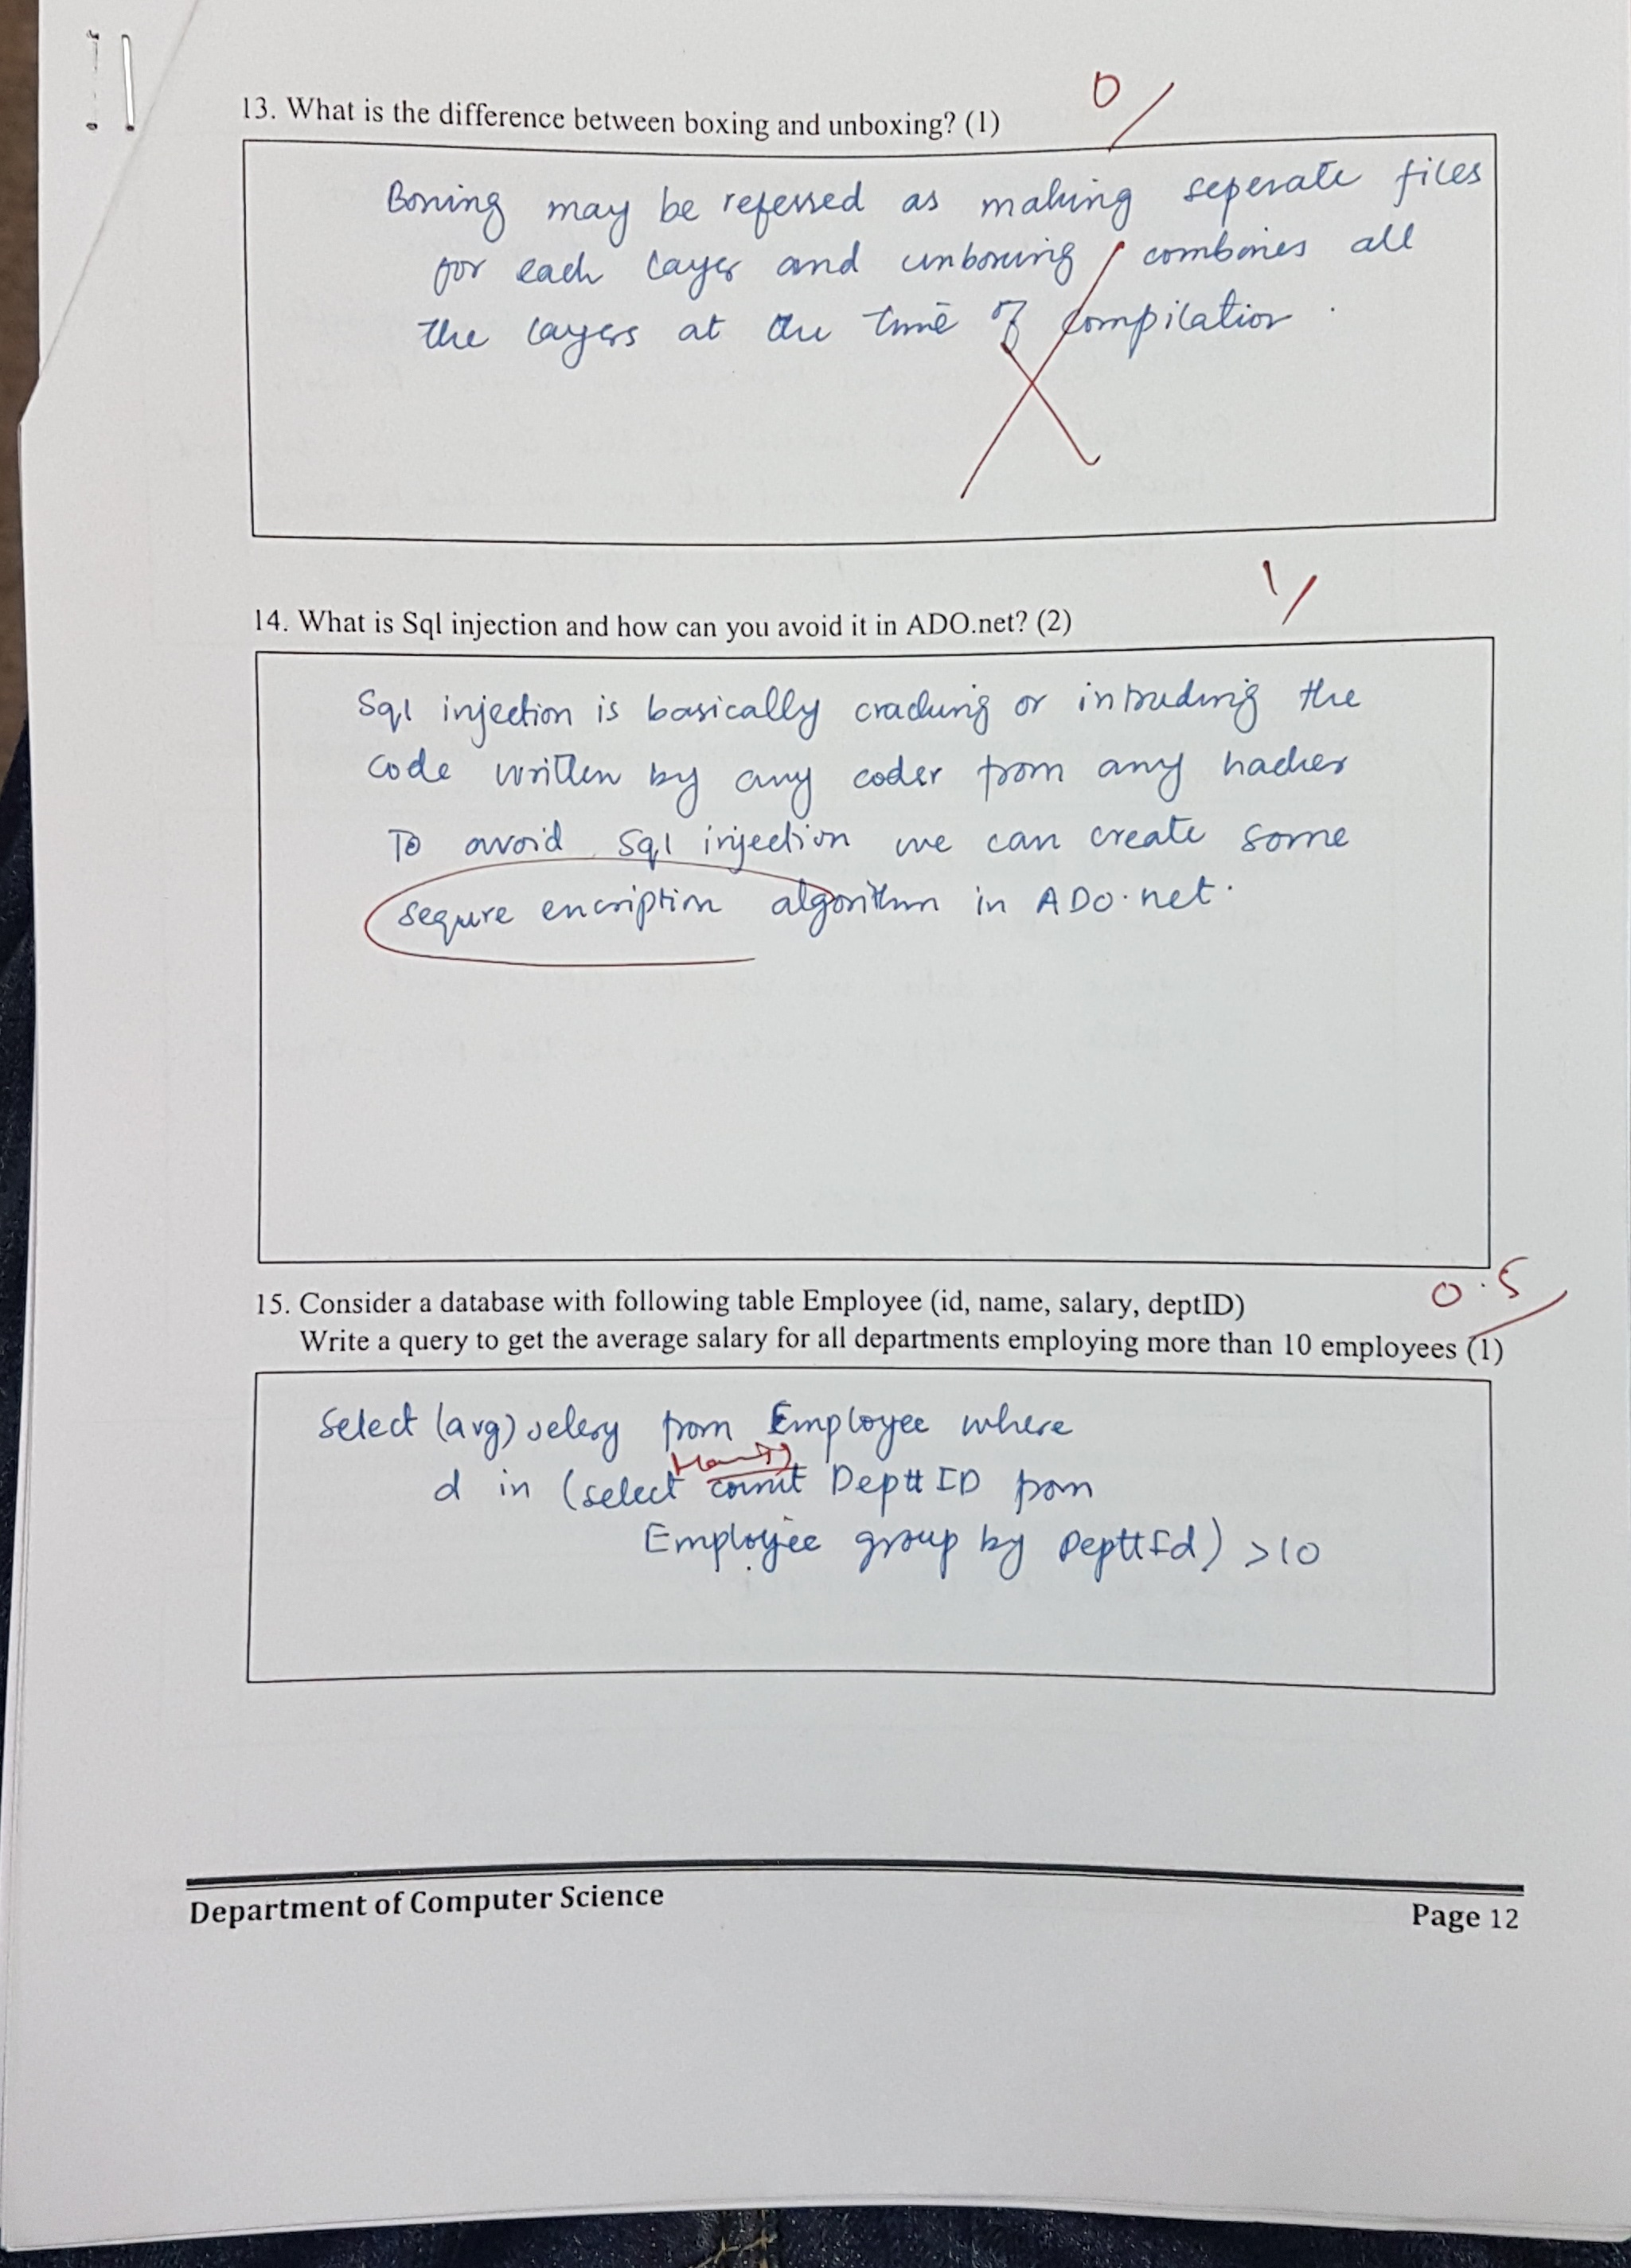 0/
13. What is the difference between boxing and unboxing? (1)
Boxing may be referred as making seperate files
for each layer and unboxing combines all
the layers at the time of compilation.
1/
14. What is Sql injection and how can you avoid it in ADO.net? (2)
Sql injection is basically cracking or intruding the
code written by any coder from any hacker
To avoid Sql injection we can create some
sequre encription algorithm in ADO.net.
0.5
15. Consider a database with following table Employee (id, name, salary, deptID)
Write a query to get the average salary for all departments employing more than 10 employees (1)
Select (avg) selery from Employee where
d in (select count Deptt ID from
Employee group by DepttId) >10
Department of Computer Science
Page 12